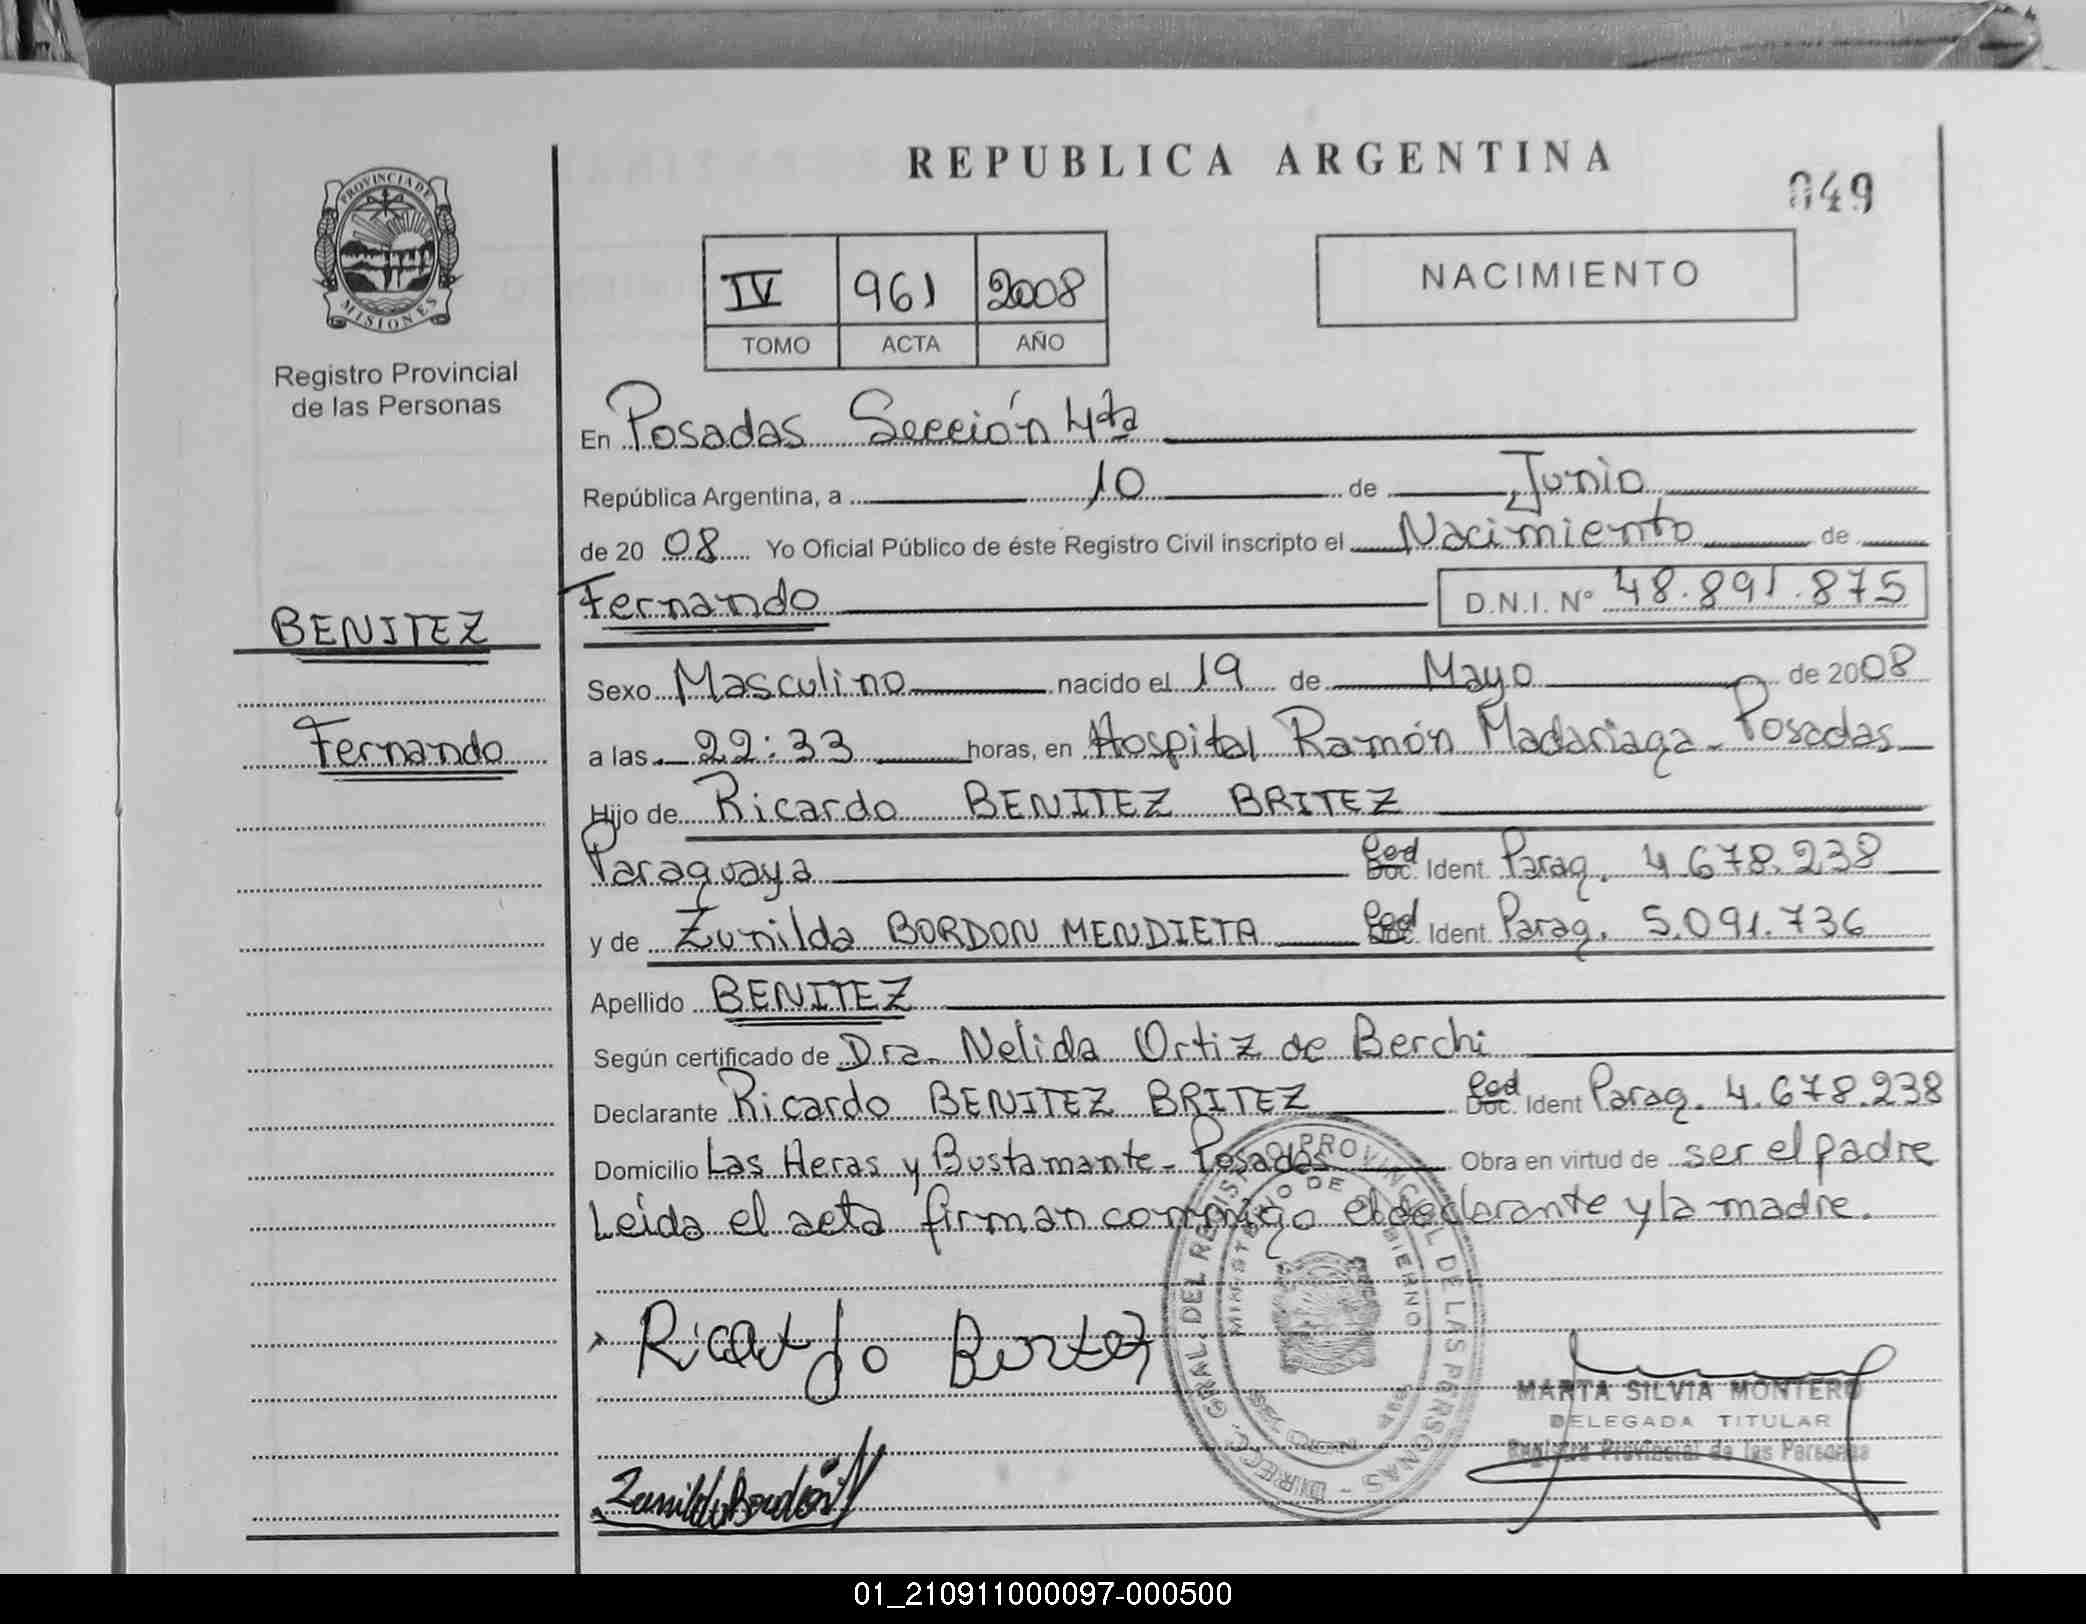 REPUBLICA ARGENTINA
049
PROVINCIA DE
MISIONES
Registro Provincial
de las Personas
IV 961 2008
TOMO ACTA AÑO
NACIMIENTO
En Posadas Sección 4ta
República Argentina, a 10 de Junio
de 20 08 Yo Oficial Público de éste Registro Civil inscripto el Nacimiento de
Fernando D.N.I. Nº 48.891.875
BENITEZ
Fernando
Sexo Masculino nacido el 19 de Mayo de 2008
a las 22:33 horas, en Hospital Ramón Madariaga - Posadas
Hijo de Ricardo BENITEZ BRITEZ
Paraguaya Ced Doc. Ident. Parag. 4.678.238
y de Zunilda BORDON MENDIETA Ced Doc. Ident. Parag. 5.091.736
Apellido BENITEZ
Según certificado de Dra. Nelida Ortiz de Berchi
Declarante Ricardo BENITEZ BRITEZ Ced Doc. Ident Parag. 4.678.238
Domicilio Las Heras y Bustamante - Posadas Obra en virtud de ser el padre
Leída el acta firman conmigo el declarante y la madre.
DIREC. GRAL. DEL REGISTRO PROVINCIAL DE LAS PERSONAS -
MINISTERIO DE GOBIERNO
Ricardo
Zunilda Bordón
MARTA SILVIA MONTERO
DELEGADA TITULAR
Registro Provincial de las Personas
01_210911000097-000500